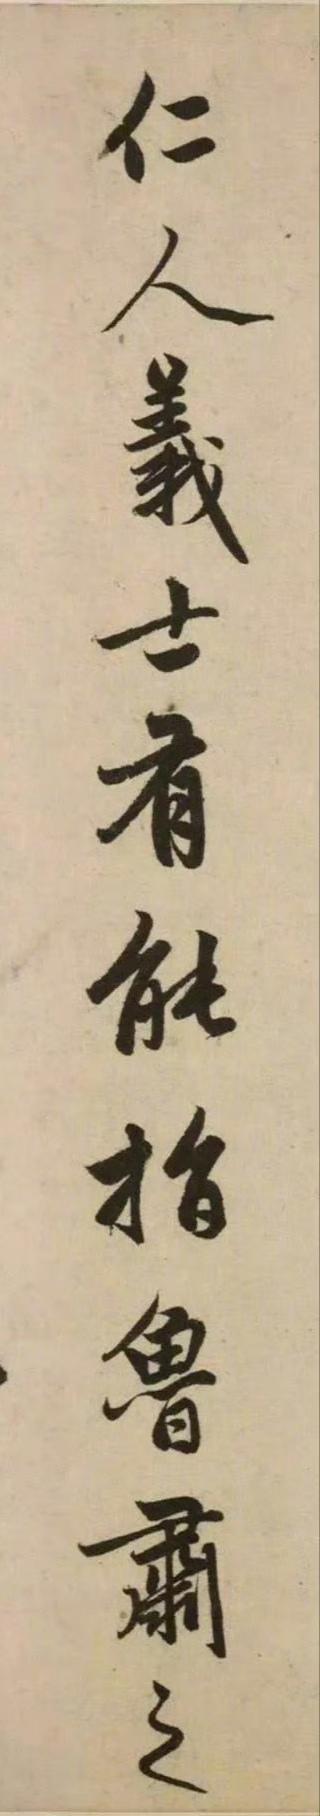 仁人義士有能指魯肅之